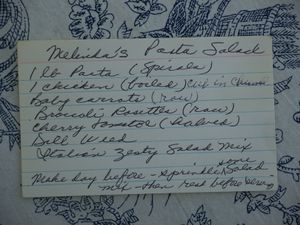 Melinda's Pasta Salad
1 lb Pasta (Spirals)
1 chicken (boiled) Cut in Chunks
Baby carrots (raw)
Broccoli Rosettes (raw)
Cherry Tomatoe (halved)
Dill Weed
Italian Zesty Salad Mix
Make day before - sprinkle some Salad
mix - then rest before serving